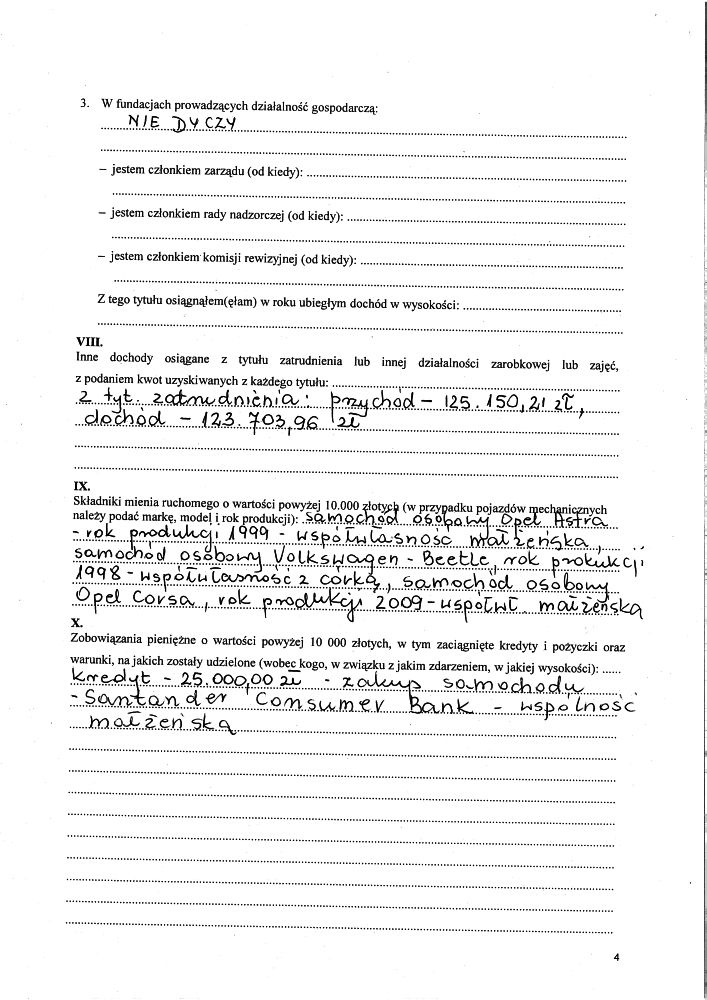 3. W fundacjach prowadzących działalność gospodarczą:
NIE DYCZY
– jestem członkiem zarządu (od kiedy):
– jestem członkiem rady nadzorczej (od kiedy):
– jestem członkiem komisji rewizyjnej (od kiedy):
Z tego tytułu osiągnąłem(ęłam) w roku ubiegłym dochód w wysokości:
VIII.
Inne dochody osiągane z tytułu zatrudnienia lub innej działalności zarobkowej lub zajęć,
z podaniem kwot uzyskiwanych z każdego tytułu:
z tyt. zatrudnienia: przychód – 125.150,21 zł,
dochód – 123.703,96 zł
IX.
Składniki mienia ruchomego o wartości powyżej 10.000 złotych (w przypadku pojazdów mechanicznych
należy podać markę, model i rok produkcji): samochód osobowy Opel Astra
- rok produkcji 1999 - współwłasność małżeńska,
samochód osobowy Volkswagen - Beetle, rok prokukcji
1998 - współwłasność z córką, samochód osobowy
Opel Corsa, rok produkcji 2009 - współwł. małżeńska
X.
Zobowiązania pieniężne o wartości powyżej 10 000 złotych, w tym zaciągnięte kredyty i pożyczki oraz
warunki, na jakich zostały udzielone (wobec kogo, w związku z jakim zdarzeniem, w jakiej wysokości):
kredyt – 25.000,00 zł - zakup samochodu
- Santander Consumer Bank - wspólność
małżeńska
4